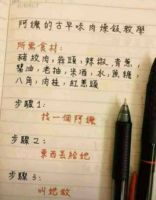 阿嬤的古早味肉燥飯教學
所需食材:
豬絞肉,蒜頭,辣椒,青蔥,
醬油,老抽,米酒,水,蔗糖,
八角,肉桂,紅蔥頭
步驟1:
找一個阿嬤
步驟2:
東西丟給她
步驟3:
叫她做